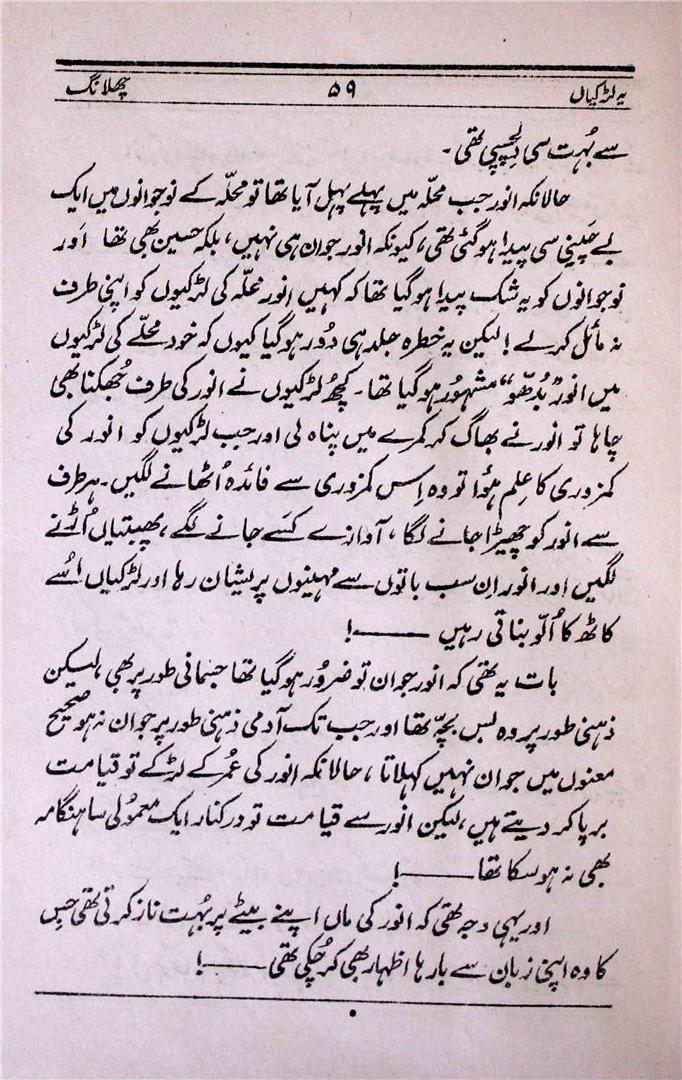 یہ لڑکیاں ۵۹ چھلانگ
سے بُہت سی دلچسپی تھی۔
حالانکہ انور جب محلّہ میں پہلے پہل آیا تھا تو محلّہ کے نوجوانوں میں ایک
بے چَینی سی پیدا ہوگئی تھی، کیونکہ انور جوان ہی نہیں، بلکہ حسین بھی تھا اَور
نوجوانوں کو یہ شک پیدا ہوگیا تھا کہ کہیں انور محلّہ کی لڑکیوں کو اپنی طرف
نہ مائل کرلے! لیکن یہ خطرہ جلد ہی دُور ہوگیا کیوں کہ خود محلّے کی لڑکیوں
میں انور ”بُدھّو“ مشہُور ہوگیا تھا۔ کچھُ لڑکیوں نے انور کی طرف جُھکنا بھی
چاہا تو انور نے بھاگ کر کمرے میں پناہ لی اور جب لڑکیوں کو انور کی
کمزوری کا عِلم ہؤا تو وہ اِس کمزوری سے فائدہ اُٹھانے لگیں۔ ہر طرف
سے انور کو چھیڑا جانے لگا، آوازے کَسے جانے لگے، پھبتیاں اُڑنے
لگیں اور انور اِن سب باتوں سے مہینوں پریشان رہا اور لڑکیاں اُسے
کاٹھ کا اُلّو بناتی رہیں ——!
بات یہ تھی کہ انور جوان تو ضرُور ہوگیا تھا جسمانی طور پر بھی، لیکن
ذہنی طور پر وہ بس بچّہ تھا اور جب تک آدمی ذہنی طور پر جوان نہ ہو صحیح
معنوں میں جوان نہیں کہلاتا، حالانکہ انور کی عُمر کے لڑکے تو قیامت
برپا کر دیتے ہیں، لیکن انور سے قیامت تو درکنار ایک معمُولی سا ہنگامہ
بھی نہ ہوسکا تھا ——!
اور یہی وجہ تھی کہ انور کی ماں اپنے بیٹے پر بُہت ناز کرتی تھی جِس
کا وہ اپنی زبان سے بارہا اظہار بھی کر چُکی تھی ——!